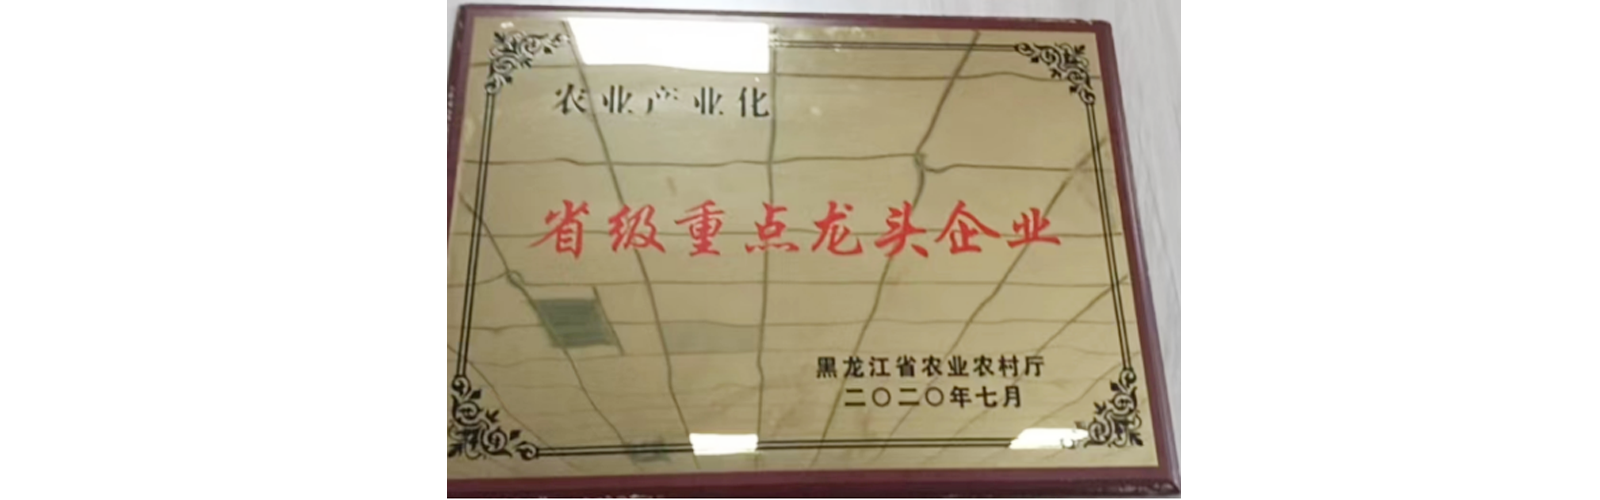 农业产业化
省级重点龙头企业
黑龙江省农业农村厅
二〇二〇年七月